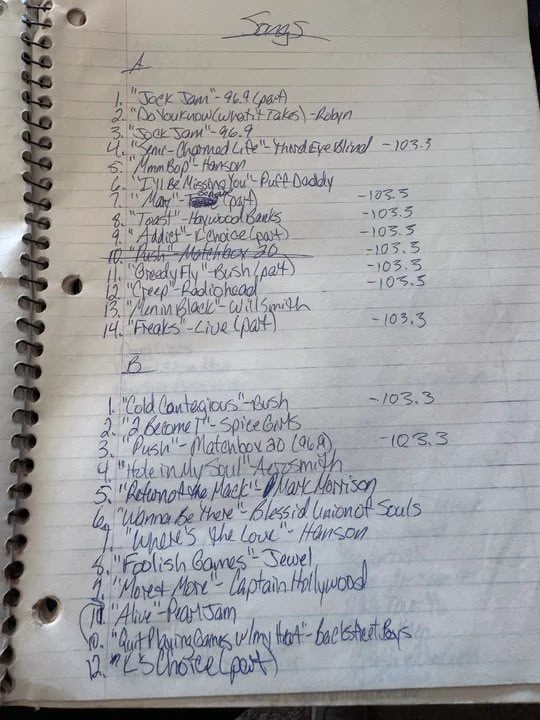 Songs
A
1. "Jock Jam" - 96.9 (part)
2. "Do You Know (what it Takes) - Robyn
3. "Jock Jam" - 96.9
4. "Semi-Charmed Life" - Third Eye Blind - 103.3
5. "MmmBop" - Hanson
6. "I'll Be Missing You" - Puff Daddy
7. "Mary" (part) - 103.5
8. "Toast" - Haywood Banks - 103.5
9. "Addict" - K-Choice (part) - 103.5
10. "Push" - Matchbox 20 - 103.3
11. "Greedy Fly" - Bush (part) - 103.3
12. "Creep" - Radiohead - 103.5
13. "Men in Black" - Will Smith
14. "Freaks" - Live (part) - 103.3
B
1. "Cold Contagious" - Bush - 103.3
2. "2 Become 1" - Spice Girls
3. "Push" - Matchbox 20 (96.9) - 103.3
4. "Hole in My Soul" Aerosmith
5. "Return of the Mack" - Mark Morrison
6. "Wanna Be There" - Blessid Union of Souls
7. "Where's the Love" - Hanson
8. "Foolish Games" - Jewel
9. "More & More" - Captain Hollywood
11. "Alive" - Pearl Jam
10. "Quit Playing Games w/my Heart" - Backstreet Boys
12. "K's Choice (part)